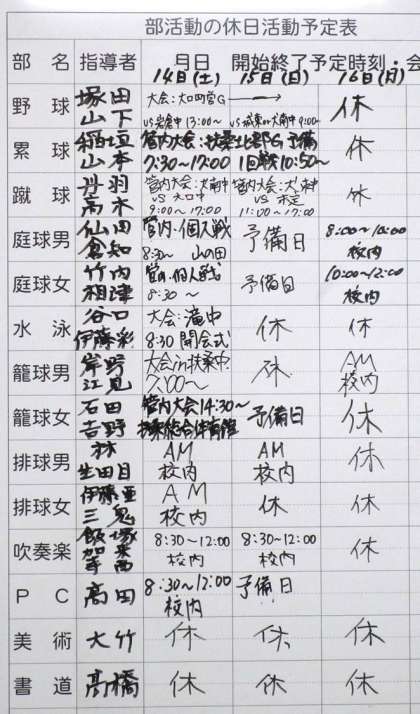 部活動の休日活動予定表
部 名 指導者 月日 開始終了予定時刻・会
14日(土) 15日(日) 16日(月)
野 球 塚田 山下 大会:大口町営G → 休
vs岩倉中 13:00〜 vs城東or大南中 9:00〜
塁 球 稲垣 山本 管内大会:扶桑北部G 予備 休
7:30〜17:00 1回戦10:50〜
蹴 球 丹羽 高木 管内大会:大南中 管内大会: 休
vs 大口中 vs 未定
9:00〜17:00 11:00〜17:00
庭球男 仙田 倉知 管内:個人戦 予備日 8:00〜10:00
8:30〜 山の田 校内
庭球女 竹内 相津 管内:個人戦 予備日 10:00〜12:00
8:30〜 校内
水 泳 谷口 伊藤彩 大会:滝中 休 休
8:30 開会式
籠球男 岸野 江見 大会in扶桑中 休 AM
校内
籠球女 石田 吉野 管内大会14:30〜 予備日 休
扶桑総合体育館
排球男 林 生田目 AM AM 休
校内 校内
排球女 伊藤亜 三鬼 AM 休 休
校内
吹奏楽 飯塚 8:30〜12:00 8:30〜12:00 休
校内 校内
P C 高田 8:30〜12:00 予備日
校内
美 術 大竹 休 休 休
書 道 高橋 休 休 休